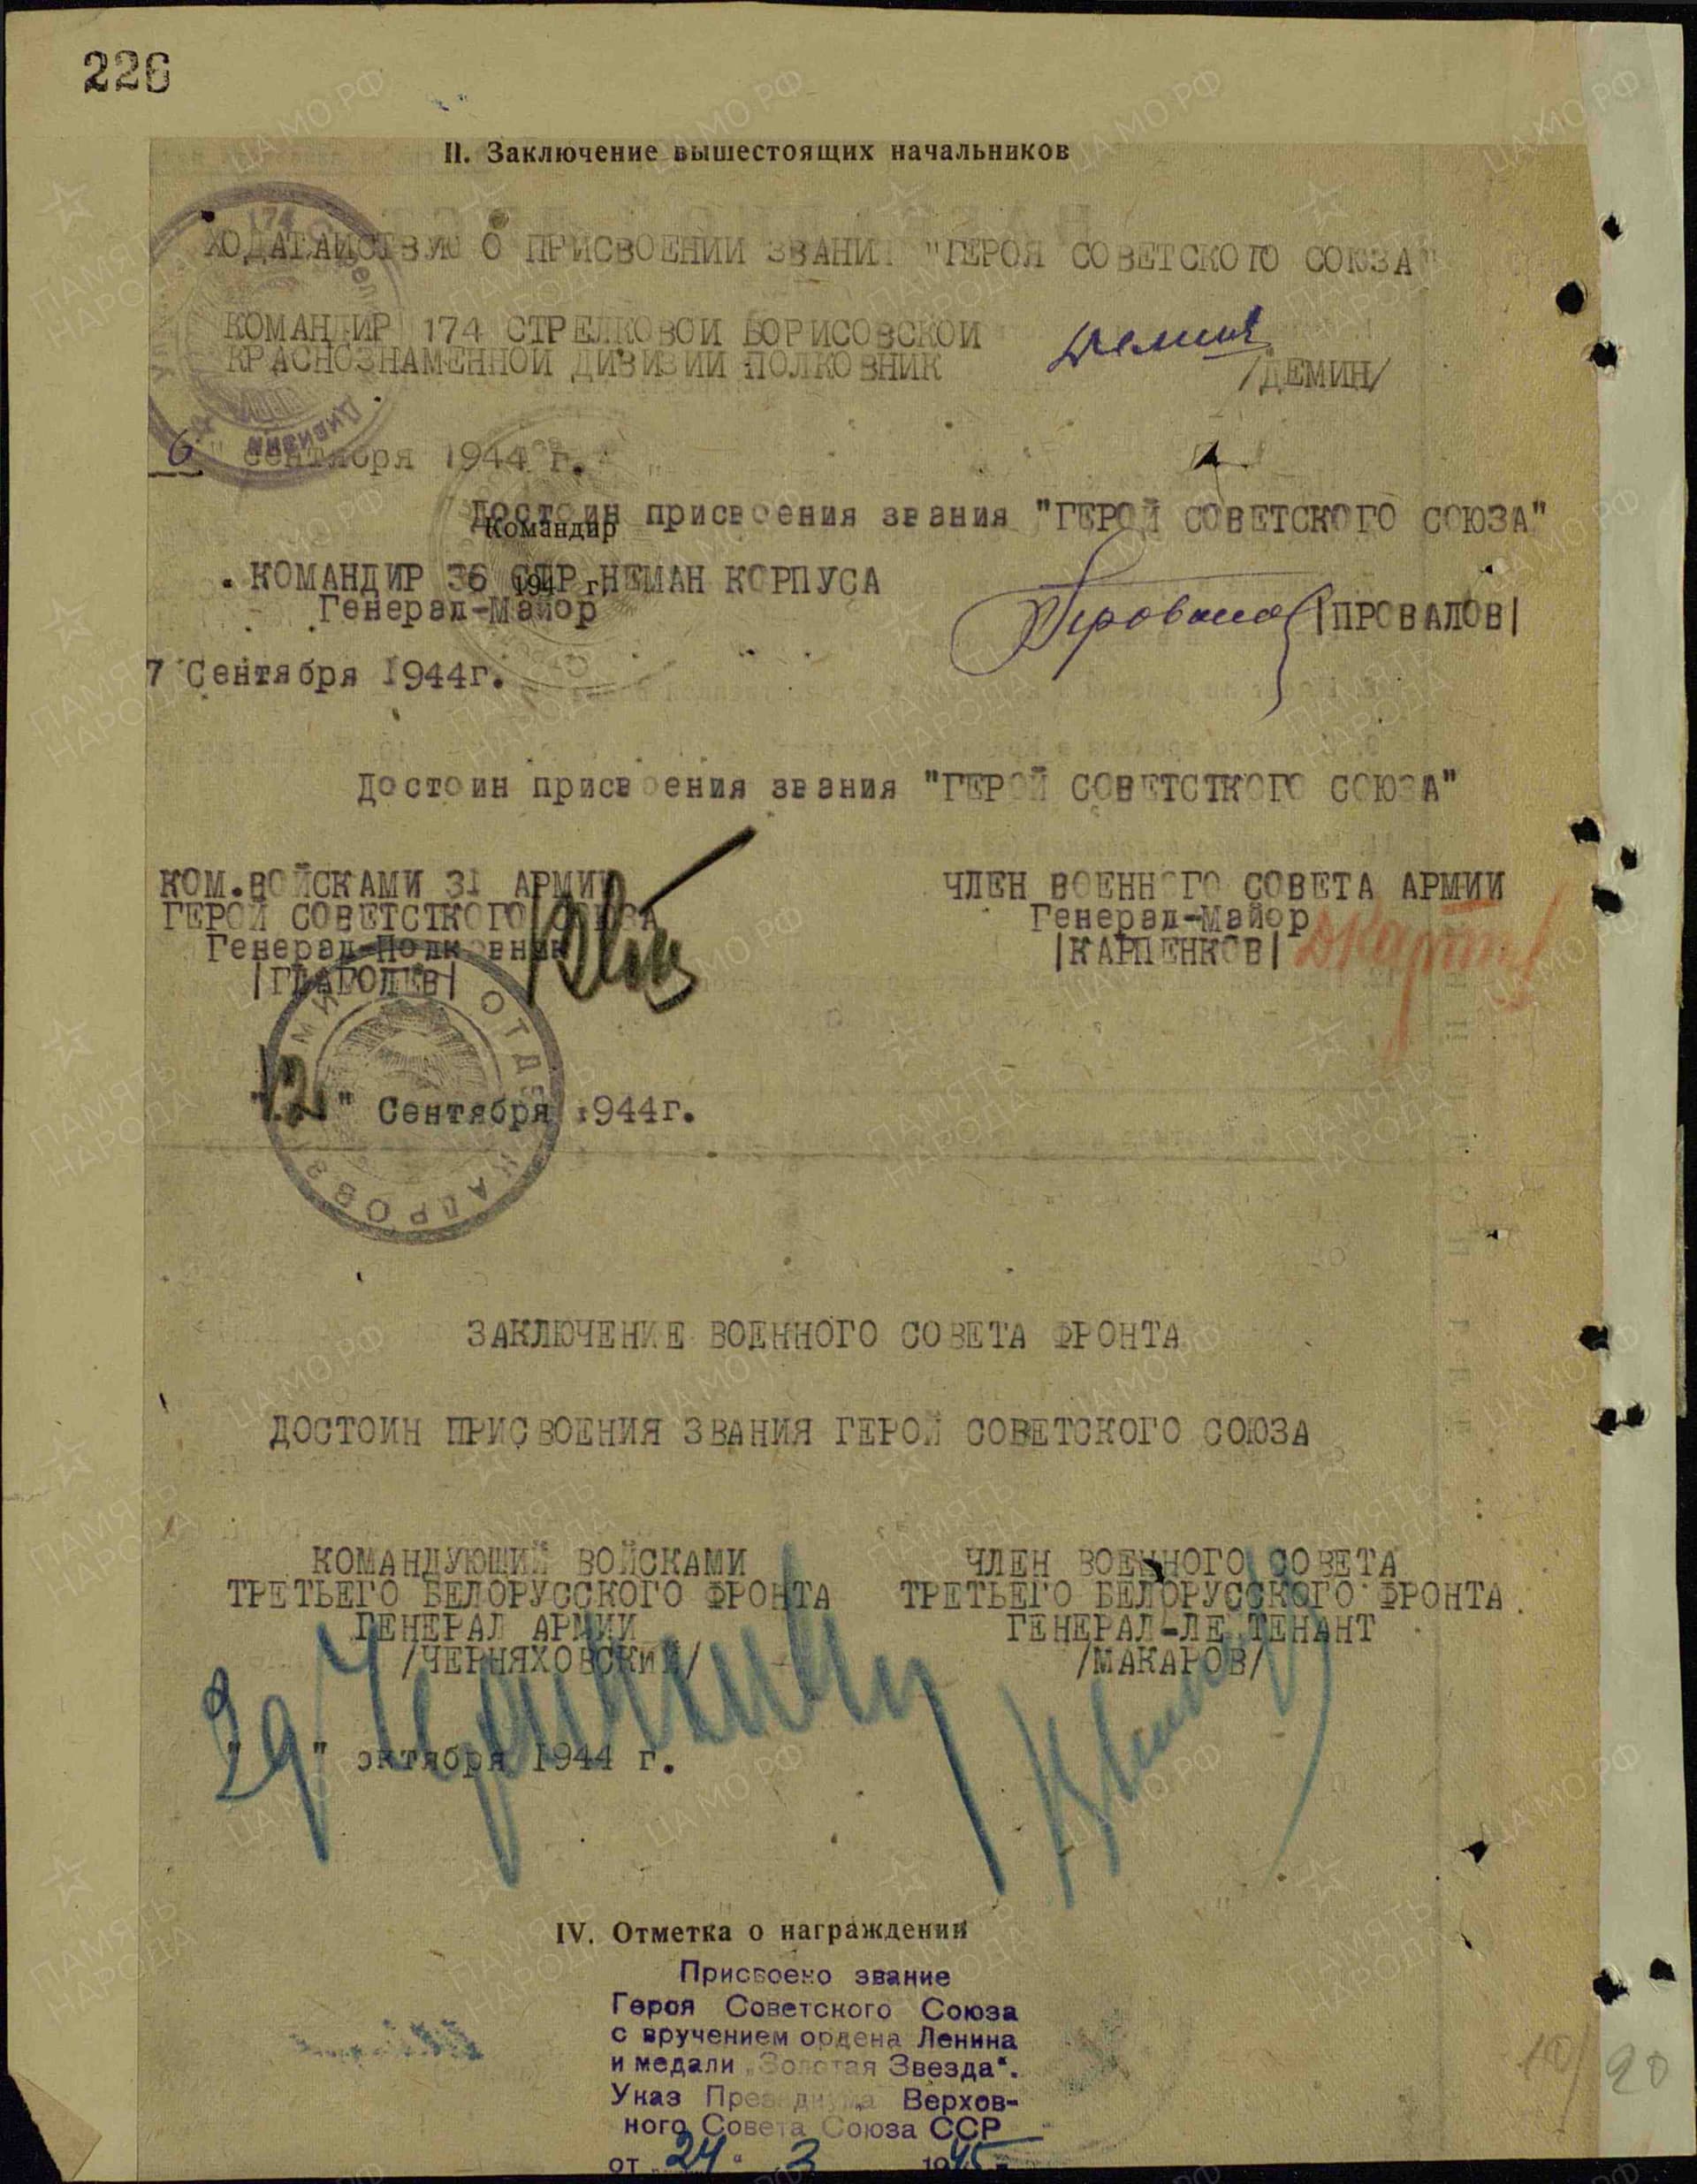 226
II. Заключение вышестоящих начальников
ХОДАТАЙСТВУЮ О ПРИСВОЕНИИ ЗВАНИ "ГЕРОЯ СОВЕТСКОГО СОЮЗА"
КОМАНДИР 174 СТРЕЛКОВОЙ БОРИСОВСКОЙ
КРАСНОЗНАМЕННОЙ ДИВИЗИИ ПОЛКОВНИК
/ДЕМИН/
6" сентября 1944 г.
Достоин присвоения звания "ГЕРОЙ СОВЕТСКОГО СОЮЗА"
Командир
КОМАНДИР 36 СТР НЕМАН КОРПУСА
194 г.
Генерал-Майор
Провалов |ПРОВАЛОВ|
7 Сентября 1944г.
Достоин присвоения звания "ГЕРОЙ СОВЕТСТКОГО СОЮЗА"
КОМ.ВОЙСКАМИ 31 АРМИИ
ГЕРОЙ СОВЕТСТКОГО СОЮЗА
Генерал-Полковник
|ГЛАГОЛЕВ|
ЧЛЕН ВОЕННОГО СОВЕТА АРМИИ
Генерал-Майор
|КАРПЕНКОВ|
"12" Сентября 1944г.
ЗАКЛЮЧЕНИЕ ВОЕННОГО СОВЕТА ФРОНТА
ДОСТОИН ПРИСВОЕНИЯ ЗВАНИЯ ГЕРОЙ СОВЕТСКОГО СОЮЗА
КОМАНДУЮЩИЙ ВОЙСКАМИ
ТРЕТЬЕГО БЕЛОРУССКОГО ФРОНТА
ГЕНЕРАЛ АРМИИ
/ЧЕРНЯХОВСКИЙ/
ЧЛЕН ВОЕННОГО СОВЕТА
ТРЕТЬЕГО БЕЛОРУССКОГО ФРОНТА
ГЕНЕРАЛ-ЛЕ ТЕНАНТ
/МАКАРОВ/
"29" октября 1944 г.
IV. Отметка о награждении
Присвоено звание
Героя Советского Союза
с вручением ордена Ленина
и медали „Золотая Звезда".
Указ Президиума Верхов-
ного Совета Союза ССР
от 24 " 3 1945
10/20